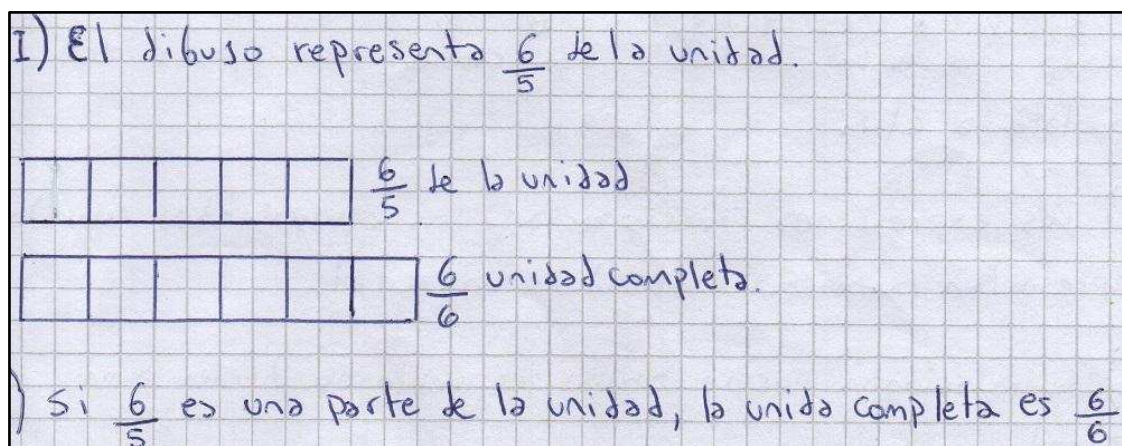 I) El dibuso representa 6/5 de la unidad.
6/5 de la unidad
6/6 unidad completa.
) si 6/5 es una parte de la unidad, la unida completa es 6/6